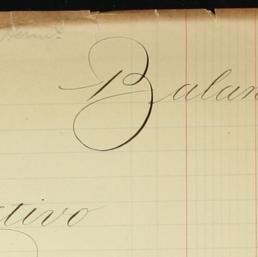 Balan
tivo